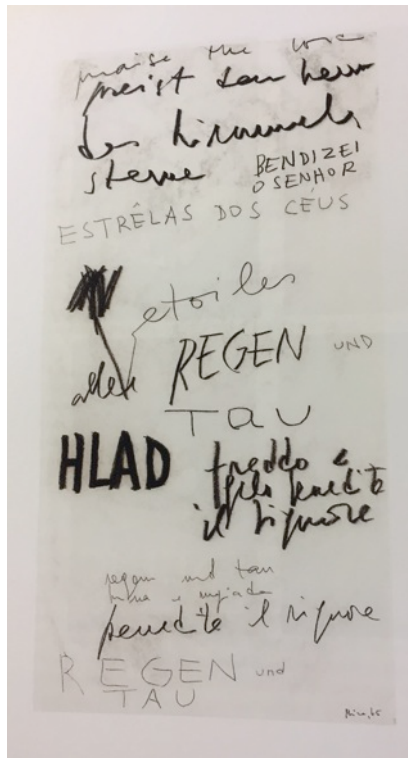 praise the lord
preist den herrn
des himmels
sterne
BENDIZEI
O SENHOR
ESTRÊLAS DOS CÉUS
etoiles
aller REGEN UND
TAU
HLAD freddo e
gelo benedite
il signore
regen und tau
benedite il signore
REGEN und
TAU